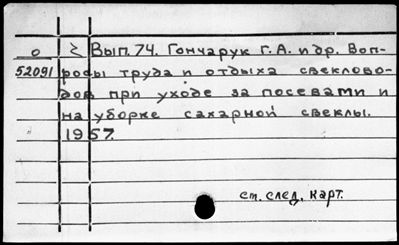 о 2 Вып. 74. Гончарук Г. А. и др. Воп-
52091 росы труда и отдыха свеклово-
дов при уходе за посевами и
на уборке сахарной свеклы.
1957.
ст. след. карт.